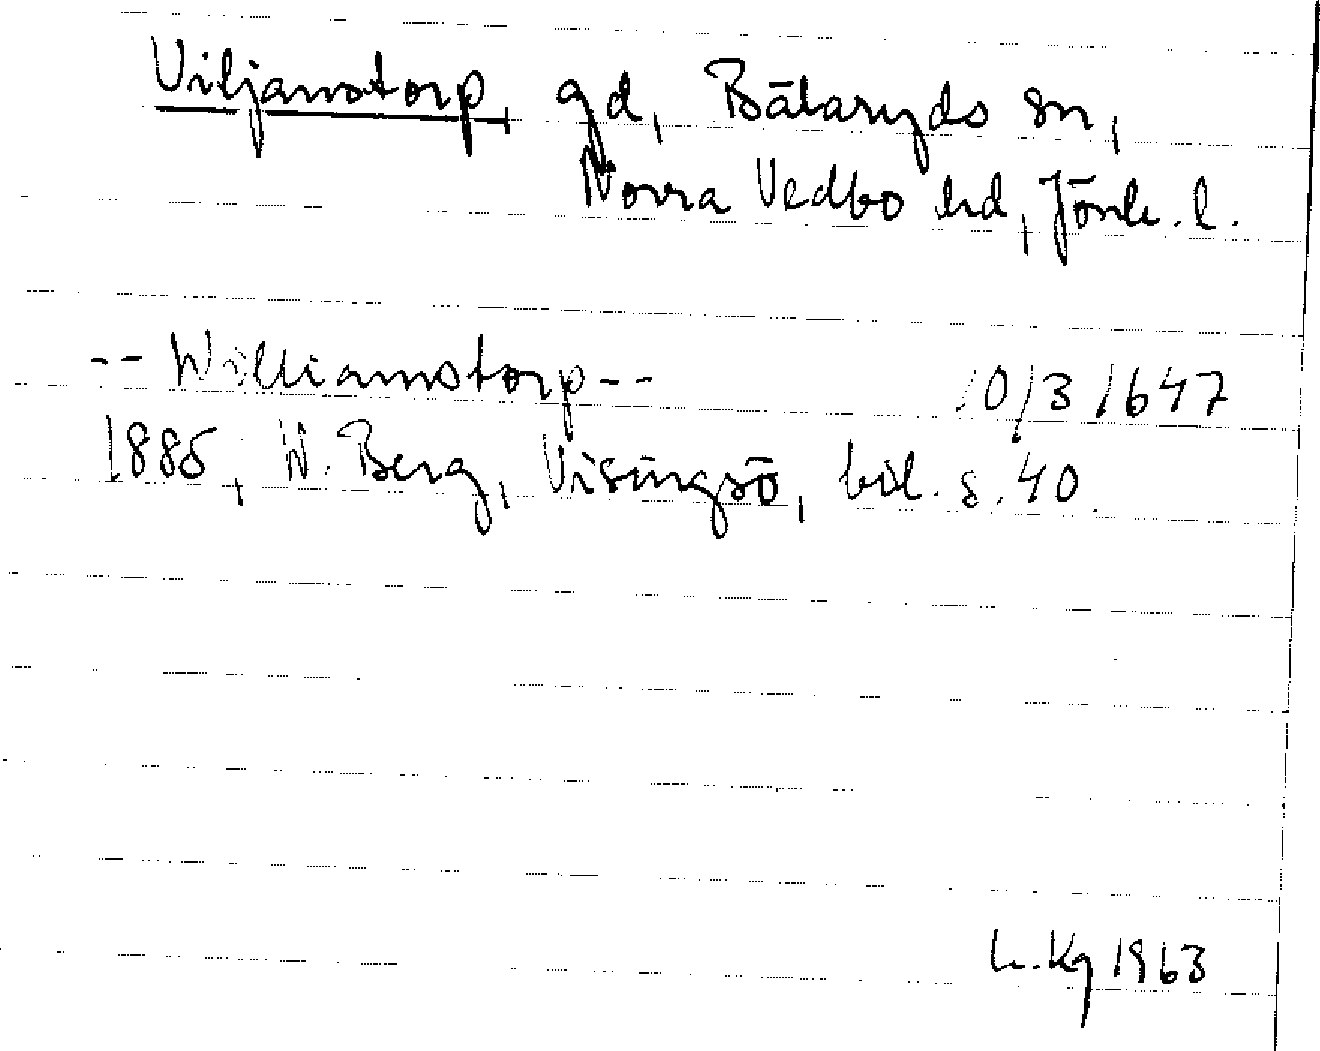 Viljamstorp, gd, Bälaryds sn,
Norra Vedbo hd, Jönk. l.
-- Williamstorp -- 10/3 1647
1885, W. Berg, Visingsö, bil. s. 40.
L. Kg 1963